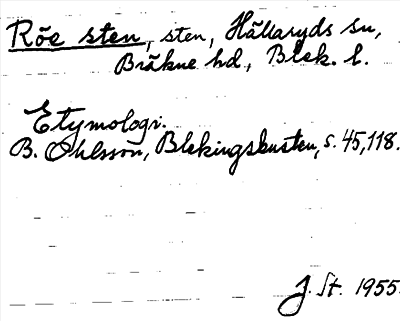 Röe sten, sten, Hällaryds sn,
Bräkne hd, Blek. l.
Etymologi.
B. Ohlsson, Blekingskusten, s. 45, 118.
J. St. 1955.